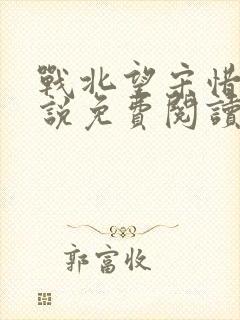 戰北望宋惜
說免費閱讀
郭富收